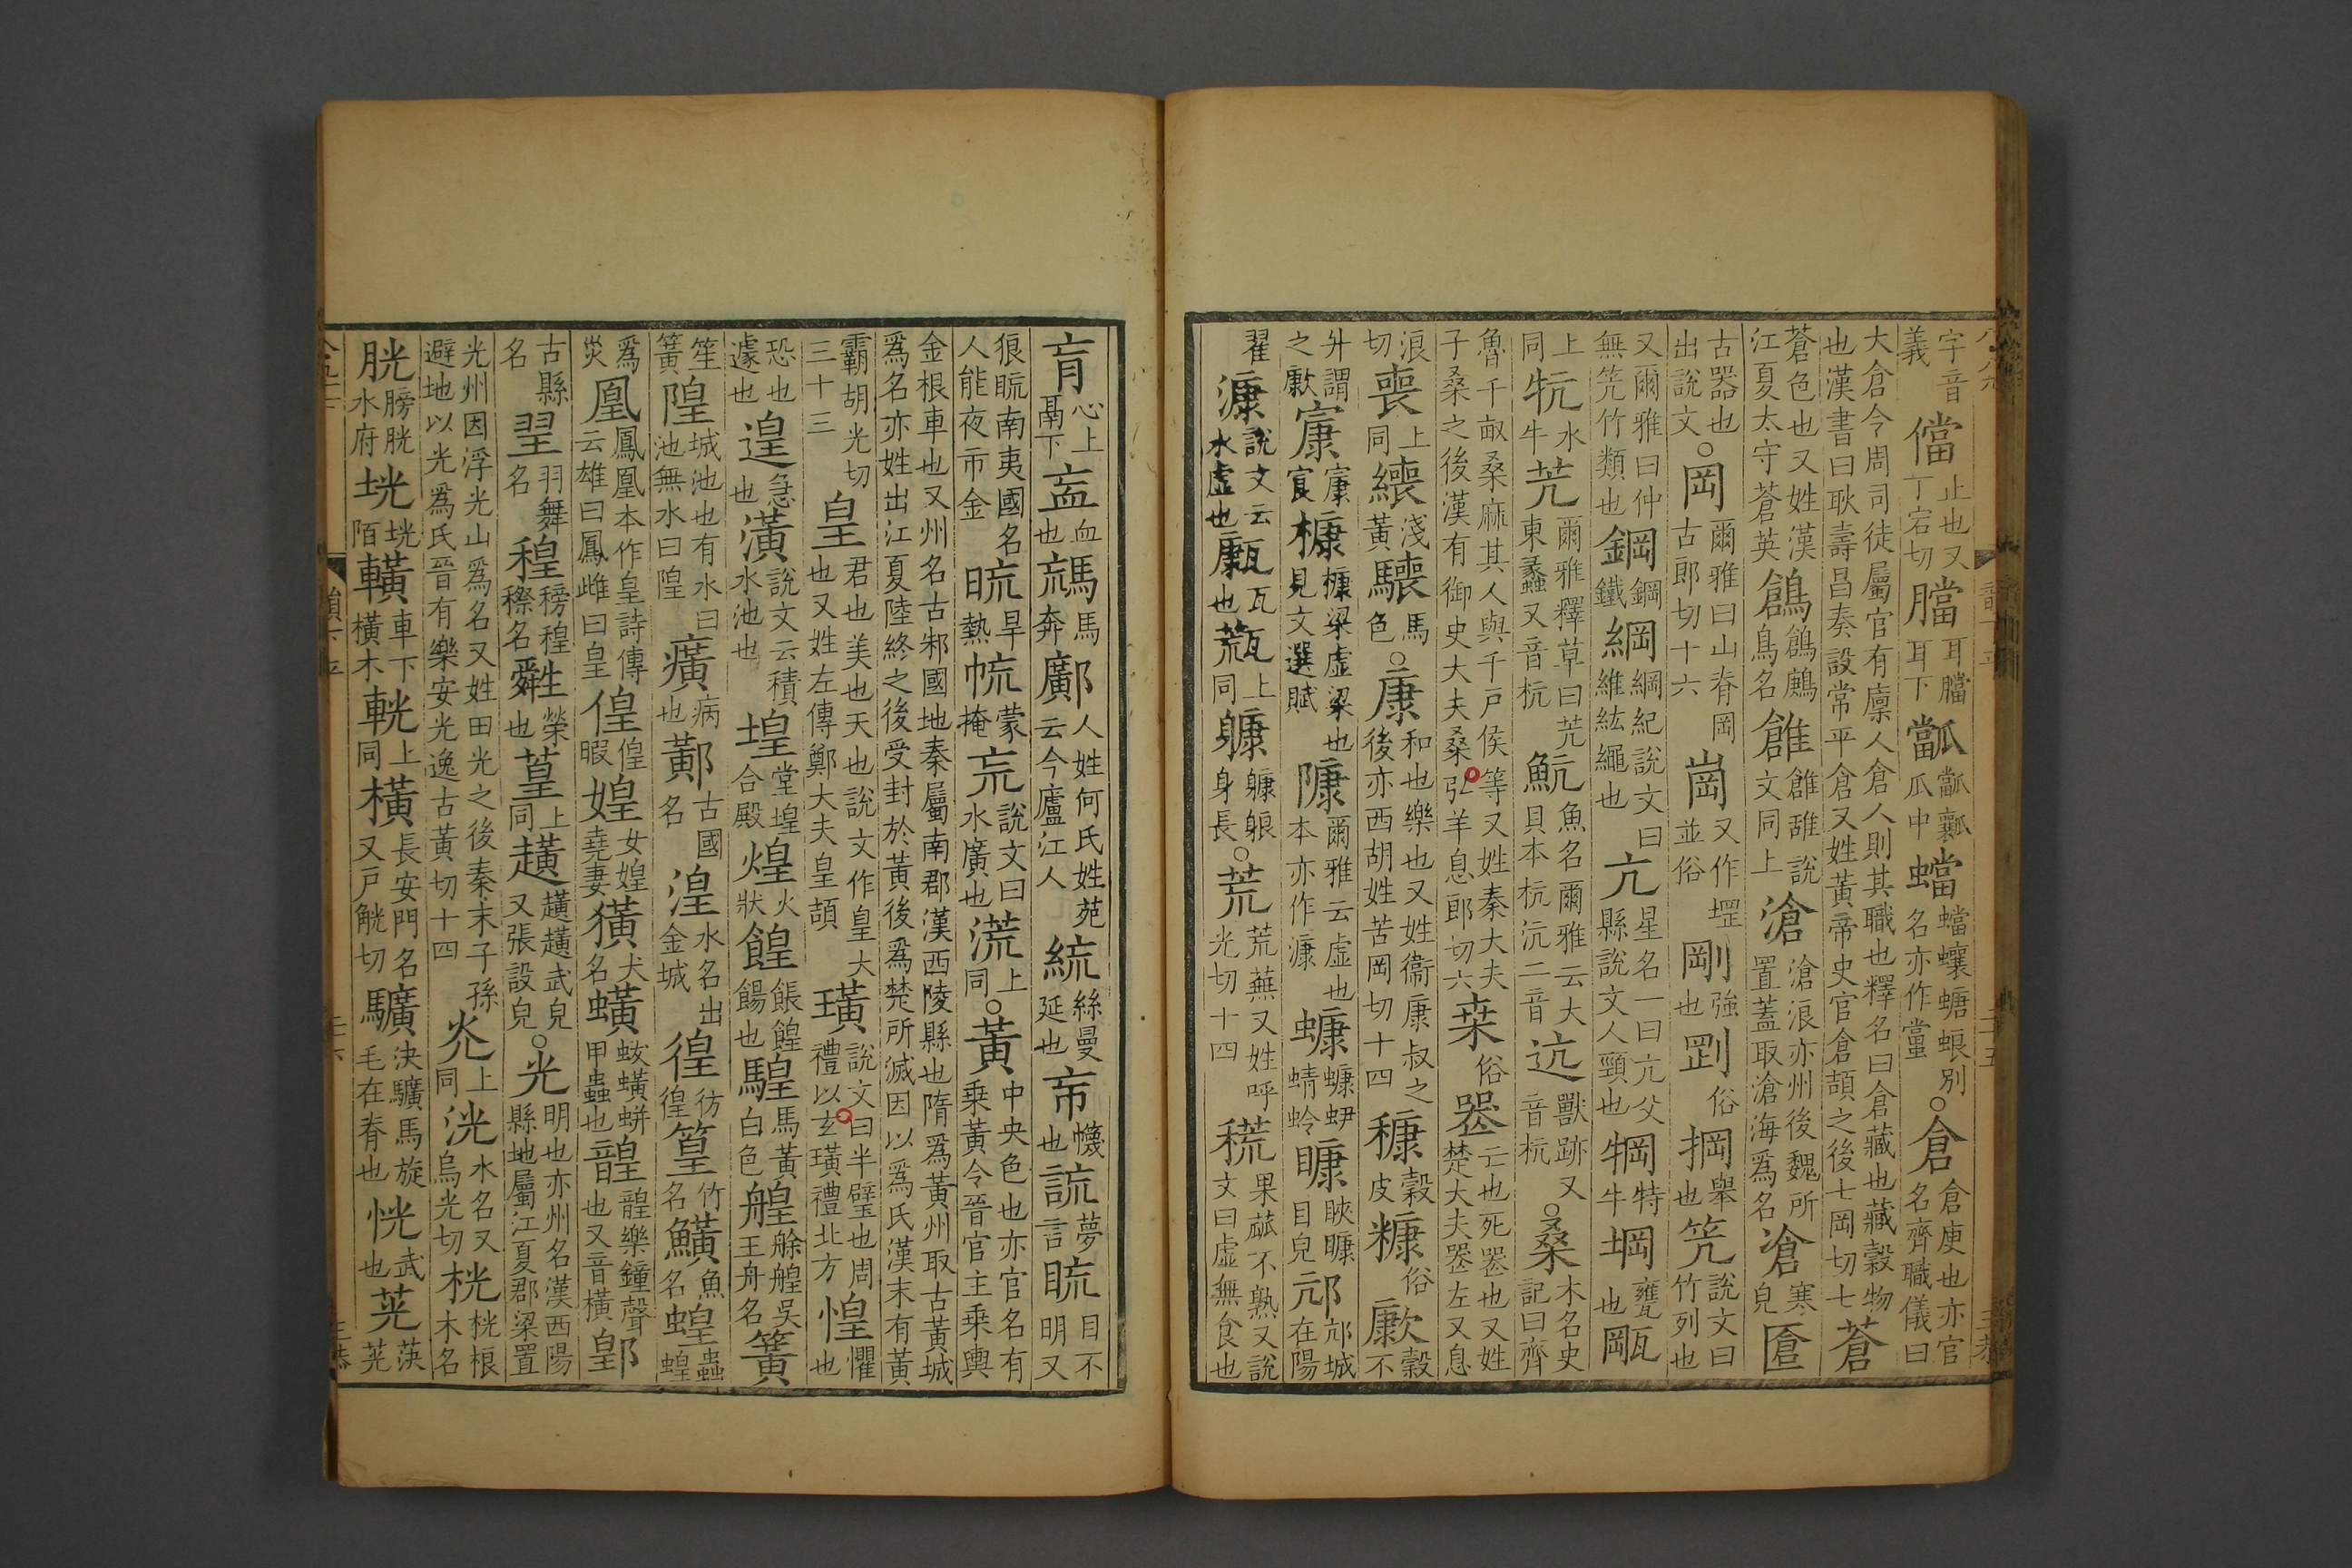 字音義儅止也又丁宕切耳下瓜中蟷蟷蠰螗蜋別名亦作䣊○倉倉庚也亦官名齊職儀曰
大倉令周司徒屬官有廩人倉人則其職也釋名曰倉藏也藏穀物也漢書曰耿壽昌奏設常平倉又姓黃帝史官倉頡之後七岡切七蒼
蒼色也又姓漢江夏太守蒼英鶬鶬鴰鳥名䧧說文同上滄滄浪亦州後魏所置蓋取滄海爲名凔寒皃
古器也出說文○岡爾雅曰山脊岡古郎切十六崗又作堽並俗剛強也㓻俗掆舉也笐說文曰竹列也
又爾雅曰仲無笐竹類也鋼鋼鐵綱綱紀說文曰維紘繩也亢星名一曰亢父縣說文人頸也犅特牛堈甕也㼚
上同牨水牛䒢爾雅釋草曰䒢東蠡又音杭魧魚名爾雅云大貝本杭沆二音迒獸跡又音杭○桑木名史記曰齊
魯千畝桑麻其人與千戶侯等又姓秦大夫子桑之後漢有御史大夫桑弘羊息郎切六桒俗喪亡也死喪也又姓楚大夫喪左又息
浪切喪上同淺黃馬色○康和也樂也又姓衞康叔之後亦西胡姓苦岡切十四穅穀皮糠俗歉穀不
升謂之歉㝩㝩㝗槺槺梁虛梁也見文選賦爾雅云虛也本亦作漮䗧蜻蛉目皃邟邟城在陽
翟漮說文云水虛也也同躿躿躴身長○荒荒蕪又姓呼光切十四䅣果蓏不熟又說文曰虛無食也
肓心上鬲下衁血也馬奔鄺人姓何氏姓苑云今廬江人絲曼延也㡆幭也謊夢言目不明又
狼䀮南夷國名人能夜市金旱熱蒙掩巟說文曰水廣也㳹上同○黃中央色也亦官名有乘黃令晉官主乘輿
金根車也又州名古邾國地秦屬南郡漢西陵縣也隋爲黃州取古黃城爲名亦姓出江夏陸終之後受封於黃後爲楚所滅因以爲氏漢末有黃
霸胡光切三十三皇君也美也天也說文作皇大也又姓左傳鄭大夫皇頡璜說文曰半璧也周禮以玄璜禮北方惶懼也
恐也遽也遑急也潢說文云積水池也堭堂堭合殿煌火狀餭餦餭餳也騜馬黃白色艎艅艎吳王舟名簧
笙簧隍城池也有水曰池無水曰隍癀病也鄸古國名湟水名出金城徨彷徨篁竹名鱑魚名蝗蟲蝗
爲災凰鳳凰本作皇詩傳云雄曰鳳雌曰皇偟偟暇媓女媓堯妻獚犬名蟥蛂蟥蛢甲蟲也韹韹樂鐘聲也又音橫鄓
古縣名翌羽舞名䅣穄名榮也葟上同趪趪趪武皃又張設皃○光明也亦州名漢西陽縣地屬江夏郡梁置
光州因浮光山爲名又姓田光之後秦末子孫避地以光爲氏晉有樂安光逸古黃切十四灮上同洸水名又烏光切桄桄桹木名
胱膀胱水府垙垙陌䡽車下橫木輄上同橫長安門名又戶觥切決䮲馬旋毛在脊也恍武也茪䒷茪